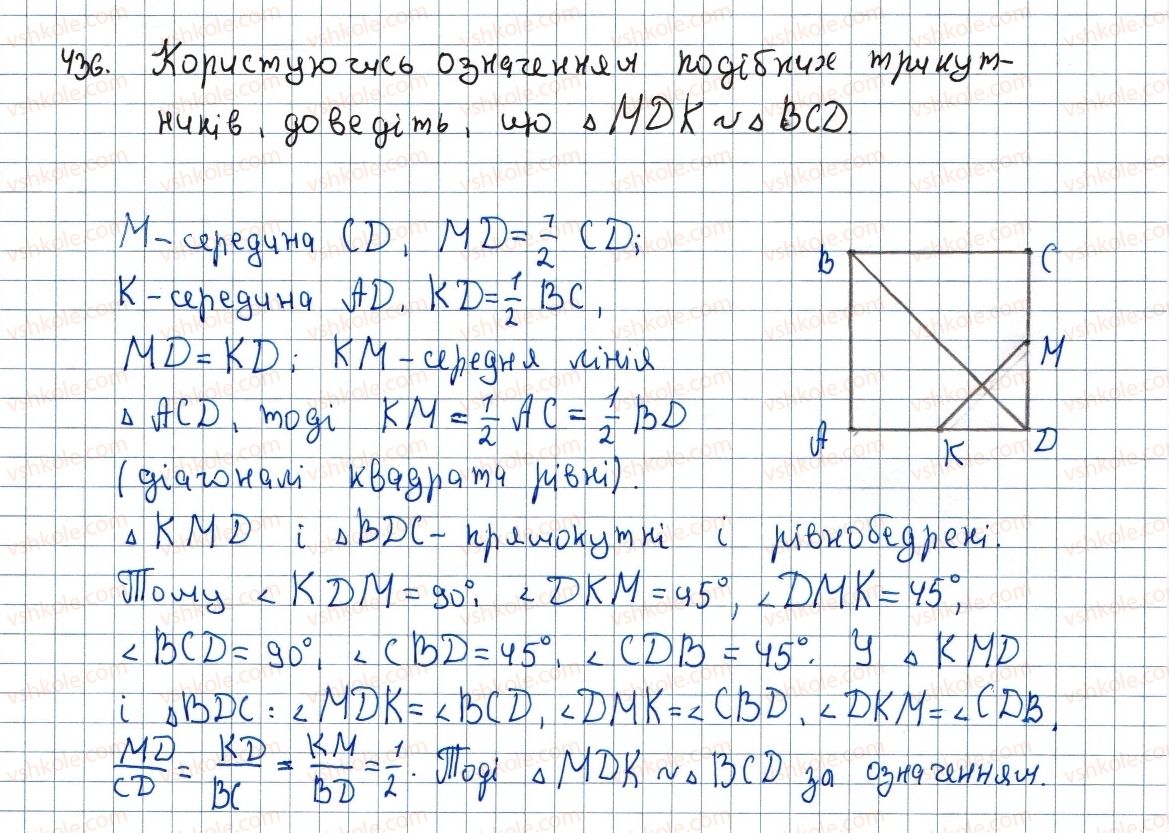 436. Користуючись означенням подібних трикут-
ників, доведіть, що △ MDK ~ △ BCD.
M - середина CD, MD = 1/2 CD;
K - середина AD, KD = 1/2 BC,
MD = KD; KM - середня лінія
△ ACD, тоді KM = 1/2 AC = 1/2 BD
(діагоналі квадрата рівні).
△ KMD і △ BDC - прямокутні і рівнобедрені.
Тому ∠ KDM = 90°, ∠ DKM = 45°, ∠ DMK = 45°,
∠ BCD = 90°, ∠ CBD = 45°, ∠ CDB = 45°. У △ KMD
і △ BDC: ∠ MDK = ∠ BCD, ∠ DMK = ∠ CBD, ∠ DKM = ∠ CDB,
MD/CD = KD/BC = KM/BD = 1/2. Тоді △ MDK ~ △ BCD за означенням.
B C
M
A K D
vshkole.com